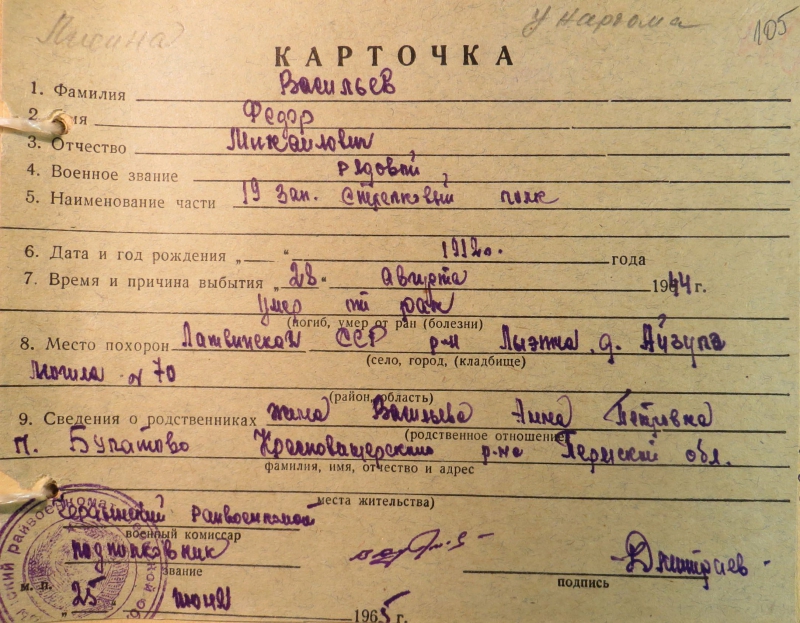 У наркома 105
КАРТОЧКА
1. Фамилия Васильев
2. Имя Федор
3. Отчество Михайлович,
4. Военное звание рядовой,
5. Наименование части 19 Зап. Стрелковый полк
6. Дата и год рождения „ “ 1912г. года
7. Время и причина выбытия „28“ августа 1944 г.
умер от ран
(погиб, умер от ран (болезни)
8. Место похорон Латвийская ССР р-н Лыэжна, д. Айзупе
(село, город, (кладбище)
Могила № 70
(район, область)
9. Сведения о родственниках жена Васильева Анна Петровна
(родственное отношение
п. Булатово Красновишерский р-на Пермской обл.
фамилия, имя, отчество и адрес
места жительства)
Чердынский райвоенкомат
военный комиссар
подполковник Дмитриев
звание подпись
м. п. „25“ июня 1965 г.